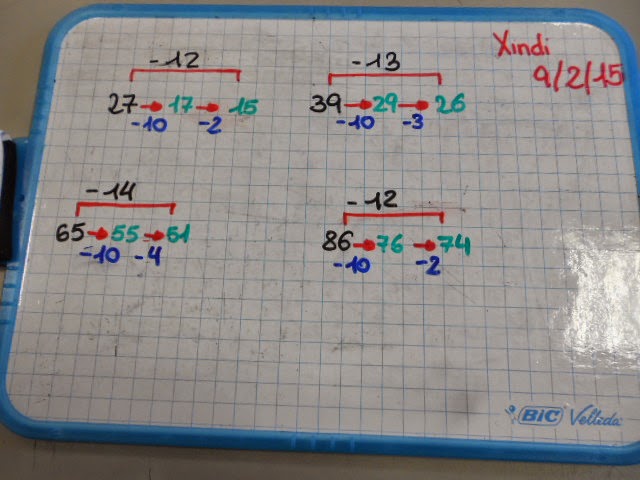 Xindi
9/2/15
-12
27 → 17 → 15
-10 -2
-13
39 → 29 → 26
-10 -3
-14
65 → 55 → 51
-10 -4
-12
86 → 76 → 74
-10 -2
BIC Velleda